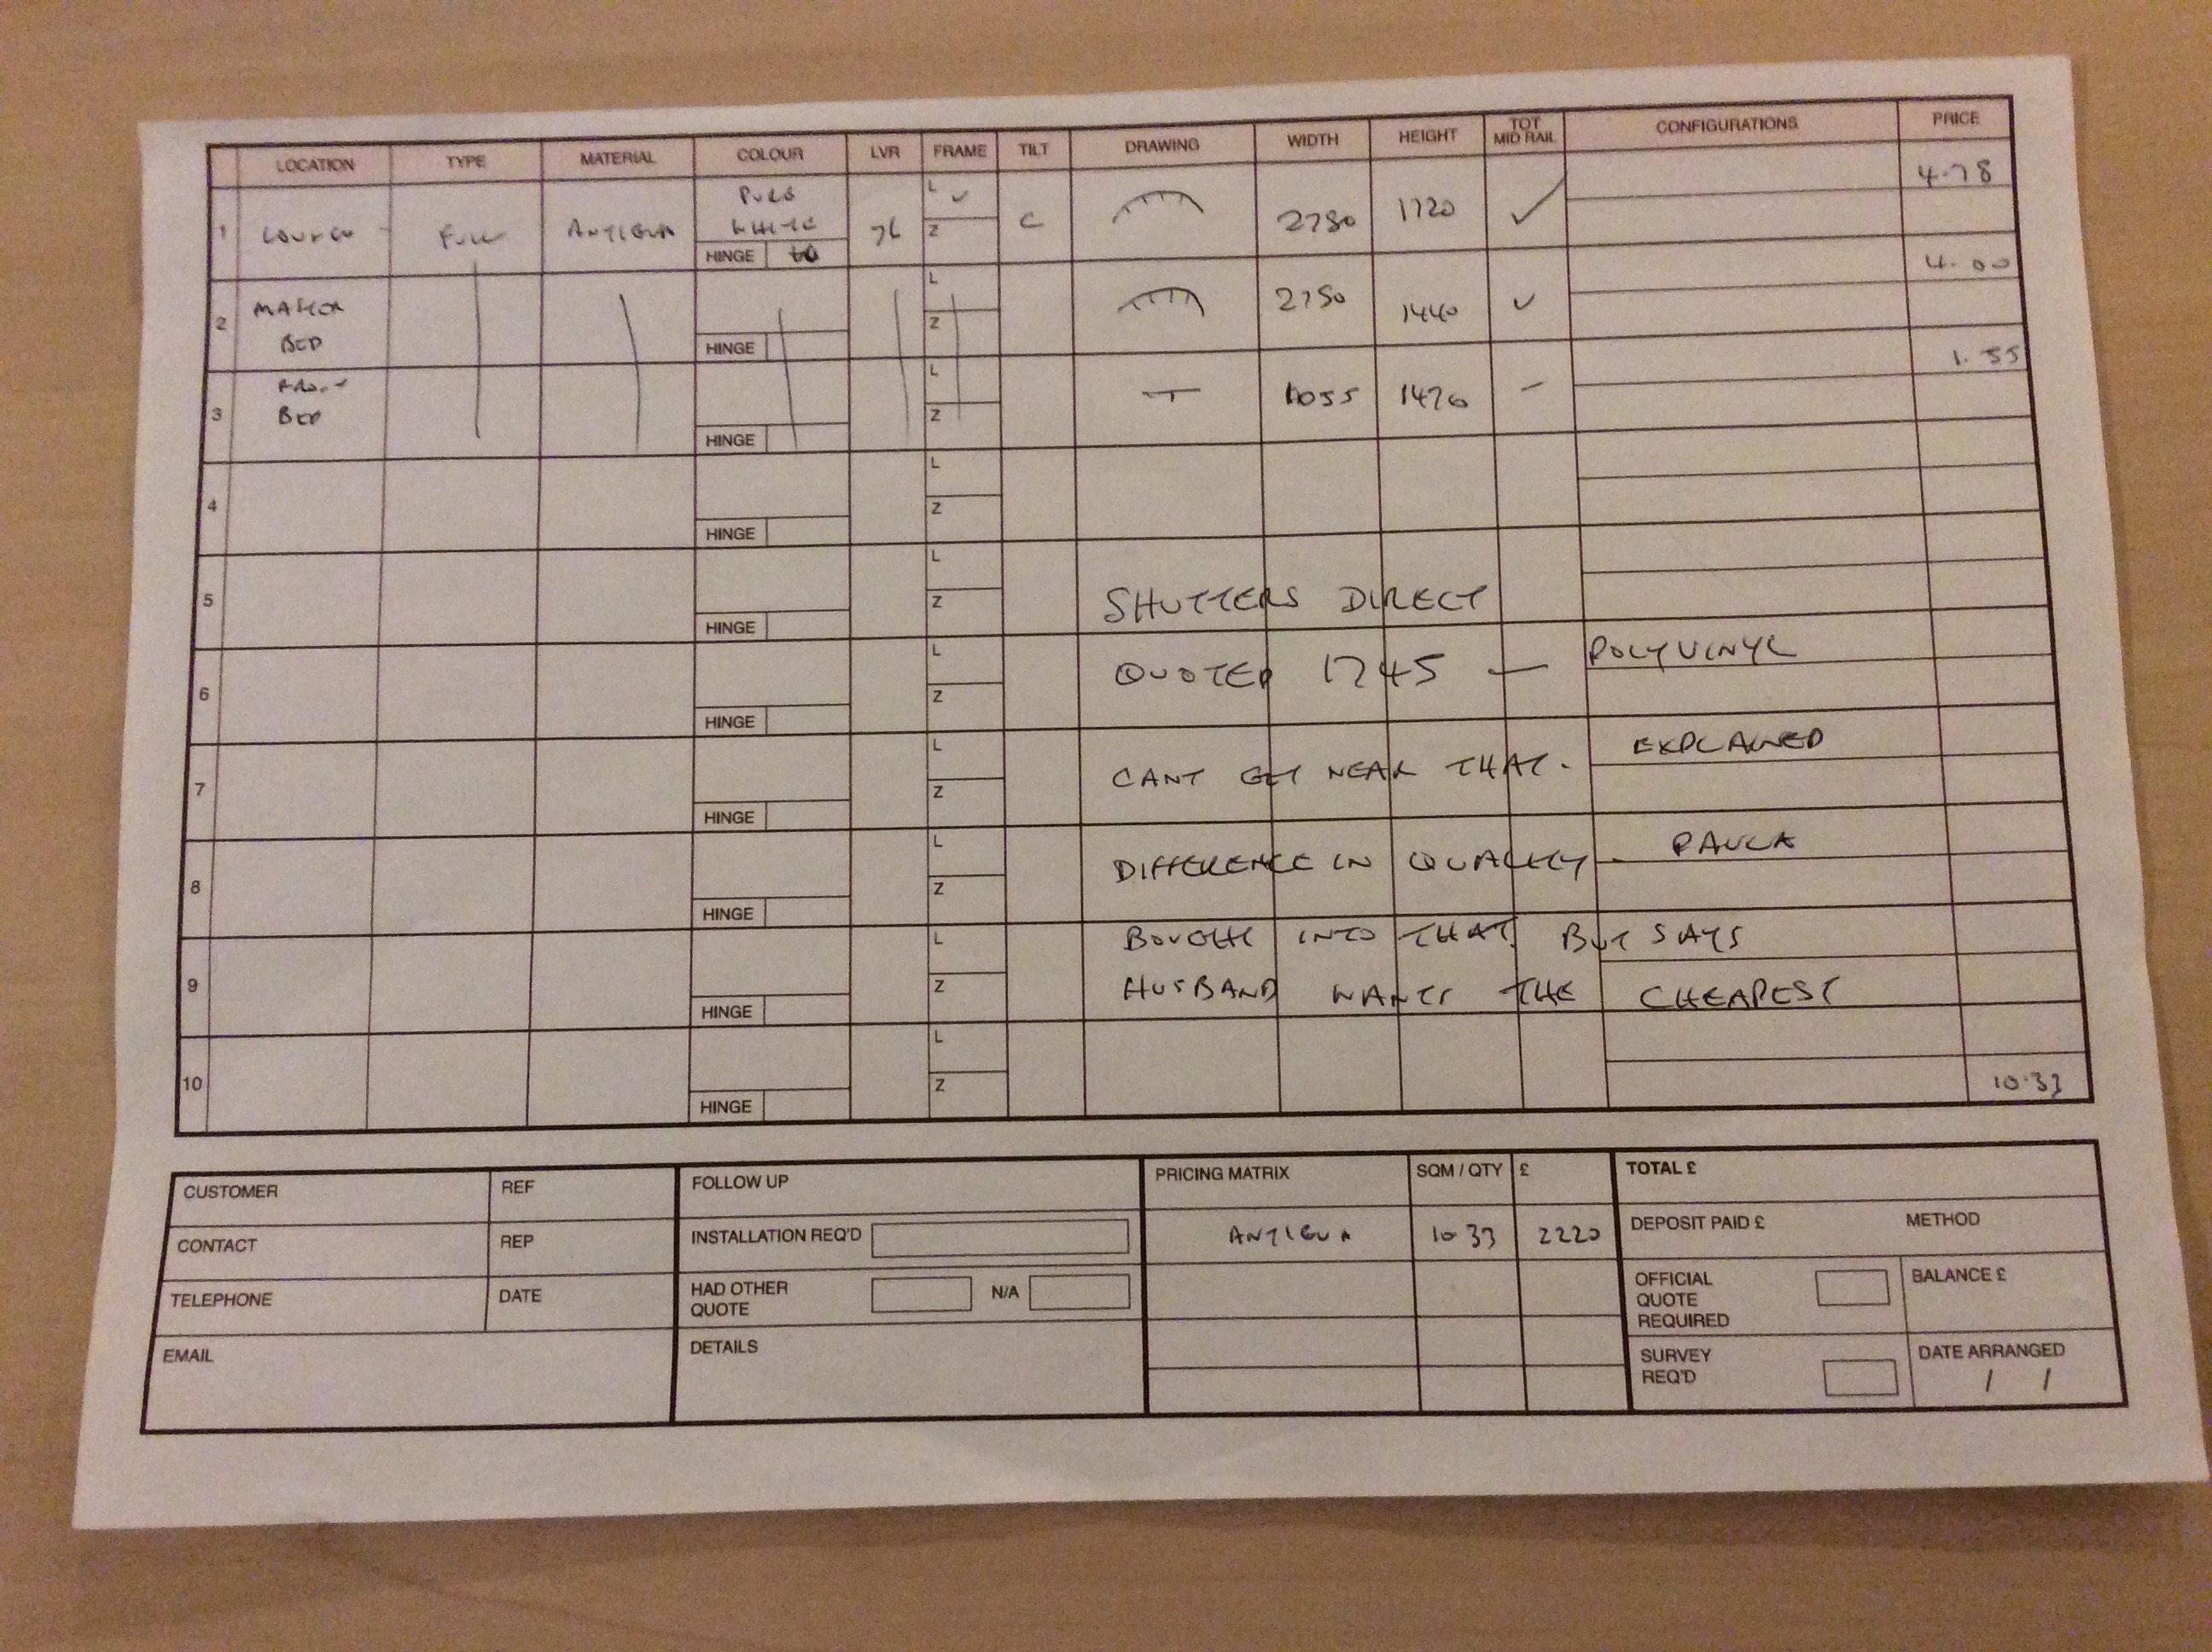 LOCATION TYPE MATERIAL COLOUR LVR FRAME TILT DRAWING WIDTH HEIGHT TOT MID RAIL CONFIGURATIONS PRICE
1 FULL ANTIGUA PURE WHITE HINGE L Z C 2780 1720 4.78
2 MASTER BED HINGE L Z 2780 1440 4.00
3 FRONT BED HINGE L Z 1055 1470 1.55
4 HINGE L Z
5 HINGE L Z SHUTTERS DIRECT
6 HINGE L Z QUOTED 1745 — POLYVINYL
7 HINGE L Z CANT GET NEAR THAT. EXPLAINED
8 HINGE L Z DIFFERENCE IN QUALITY - PAULA
9 HINGE L Z BOUGHT INTO THAT BUT SAYS
HUSBAND WANTS THE CHEAPEST
10 HINGE L Z 10.33
CUSTOMER REF FOLLOW UP PRICING MATRIX SQM / QTY £ TOTAL £
CONTACT REP INSTALLATION REQ'D ANTIGUA 10.33 2220 DEPOSIT PAID £ METHOD
TELEPHONE DATE HAD OTHER QUOTE N/A OFFICIAL QUOTE REQUIRED BALANCE £
EMAIL DETAILS SURVEY REQ'D DATE ARRANGED / /